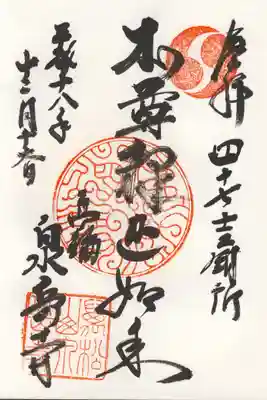 奉拝
四十七士廟所
本尊釋迦如来
高輪
泉岳寺
平成十八年
十二月十六日